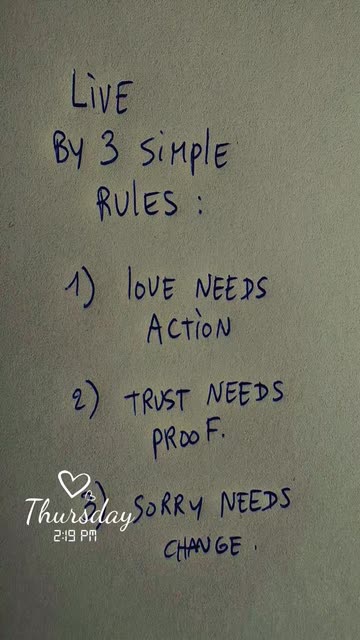 Live
By 3 Simple
Rules :
1) love NEEDS
ACTiON
2) TRUST NEEDS
PROOF.
3) SORRY NEEDS
CHANGE.
Thursday
2:19 PM